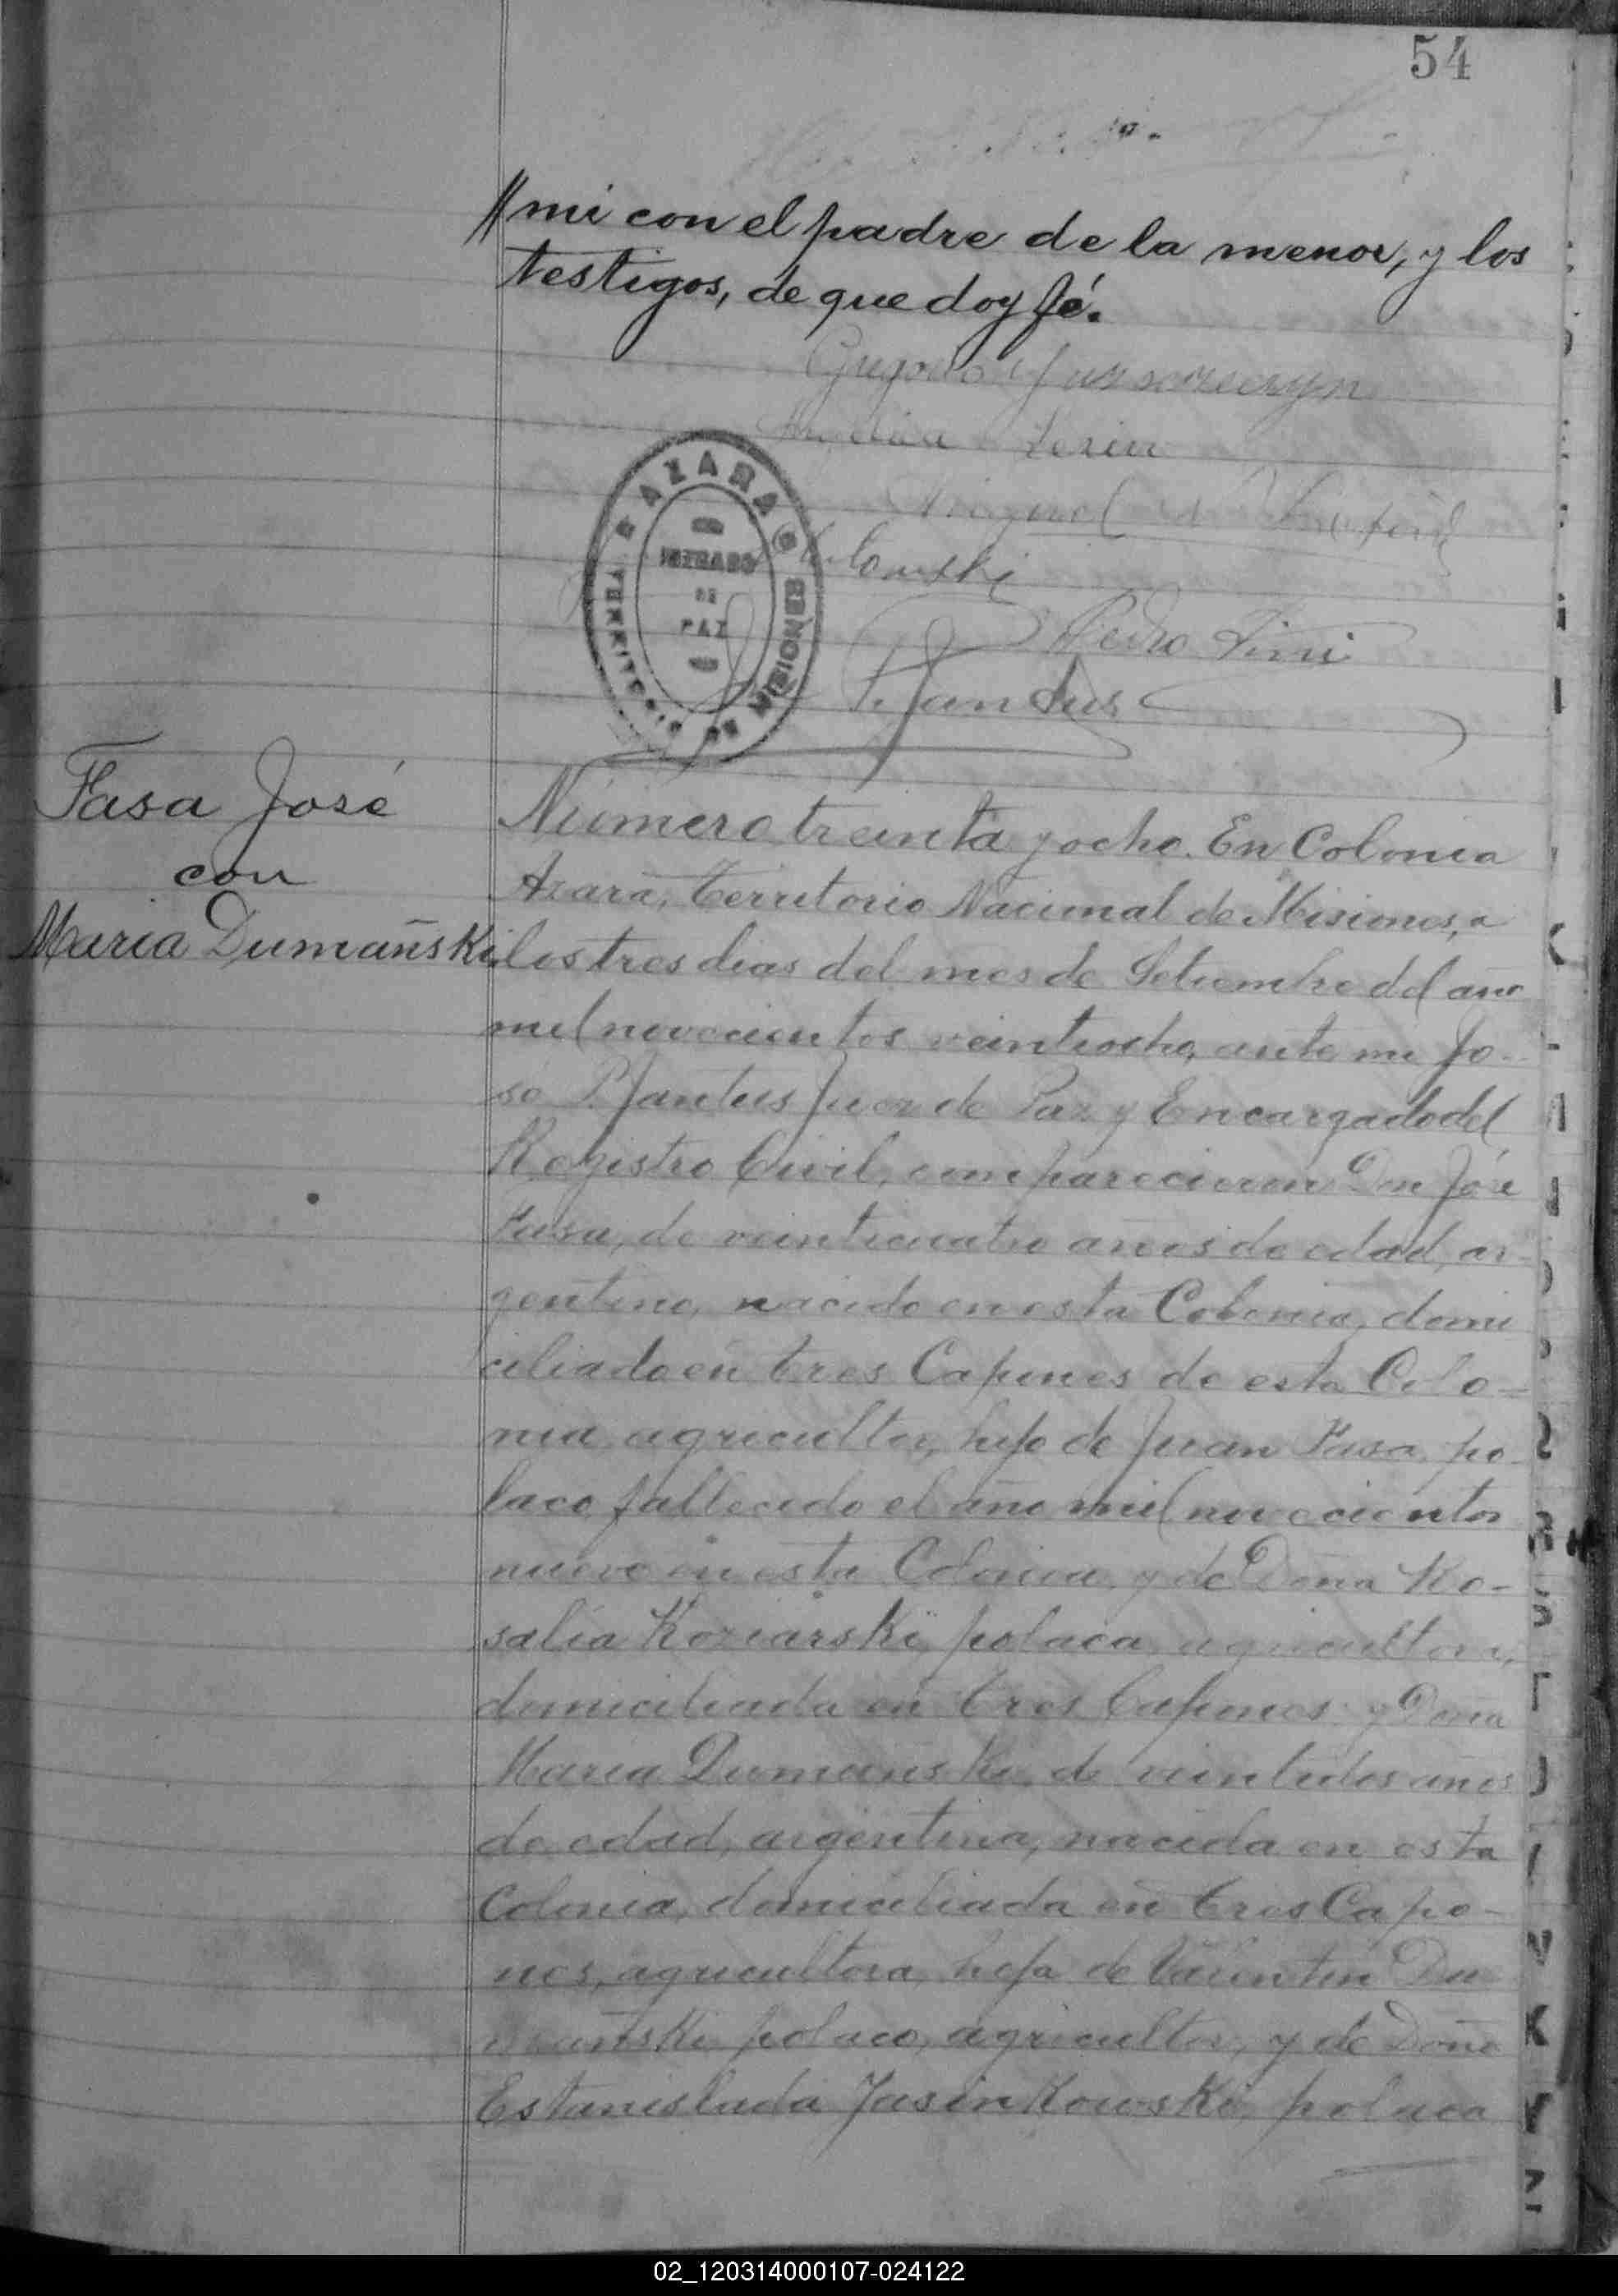 54
//mi con el padre de la menor, y los
testigos, de que doy fé.
Pedro
P. Jantus
AZARA
MISIONES
TERRITORIO DE
JUZGADO
DE
PAZ
Fasa José
con
Maria Dumañski
Número treinta y ocho. En Colonia
Azara, Territorio Nacional de Misiones, a
los tres dias del mes de Setiembre del año
mil novecientos veintiocho, ante mi Jo-
sé P. Jantus Juez de Paz y Encargado del
Registro Civil, comparecieron Don José
Fasa, de veinticuatro años de edad, ar-
gentino, nacido en esta Colonia, domi
ciliado en Tres Capones de esta Colo-
nia, agricultor, hijo de Juan Fasa, po-
laco, fallecido el año mil novecientos
nueve en esta Colonia, y de Doña Ro-
salía Koziarski, polaca, agricultora,
domiciliada en Tres Capones y Doña
María Dumañski, de veintidos años
de edad, argentina, nacida en esta
Colonia, domiciliada en Tres Capo-
nes, agricultora, hija de Valentin Du
mañski polaco, agricultor, y de Doña
Estanislada Jasinkowski, polaca
02_120314000107-024122